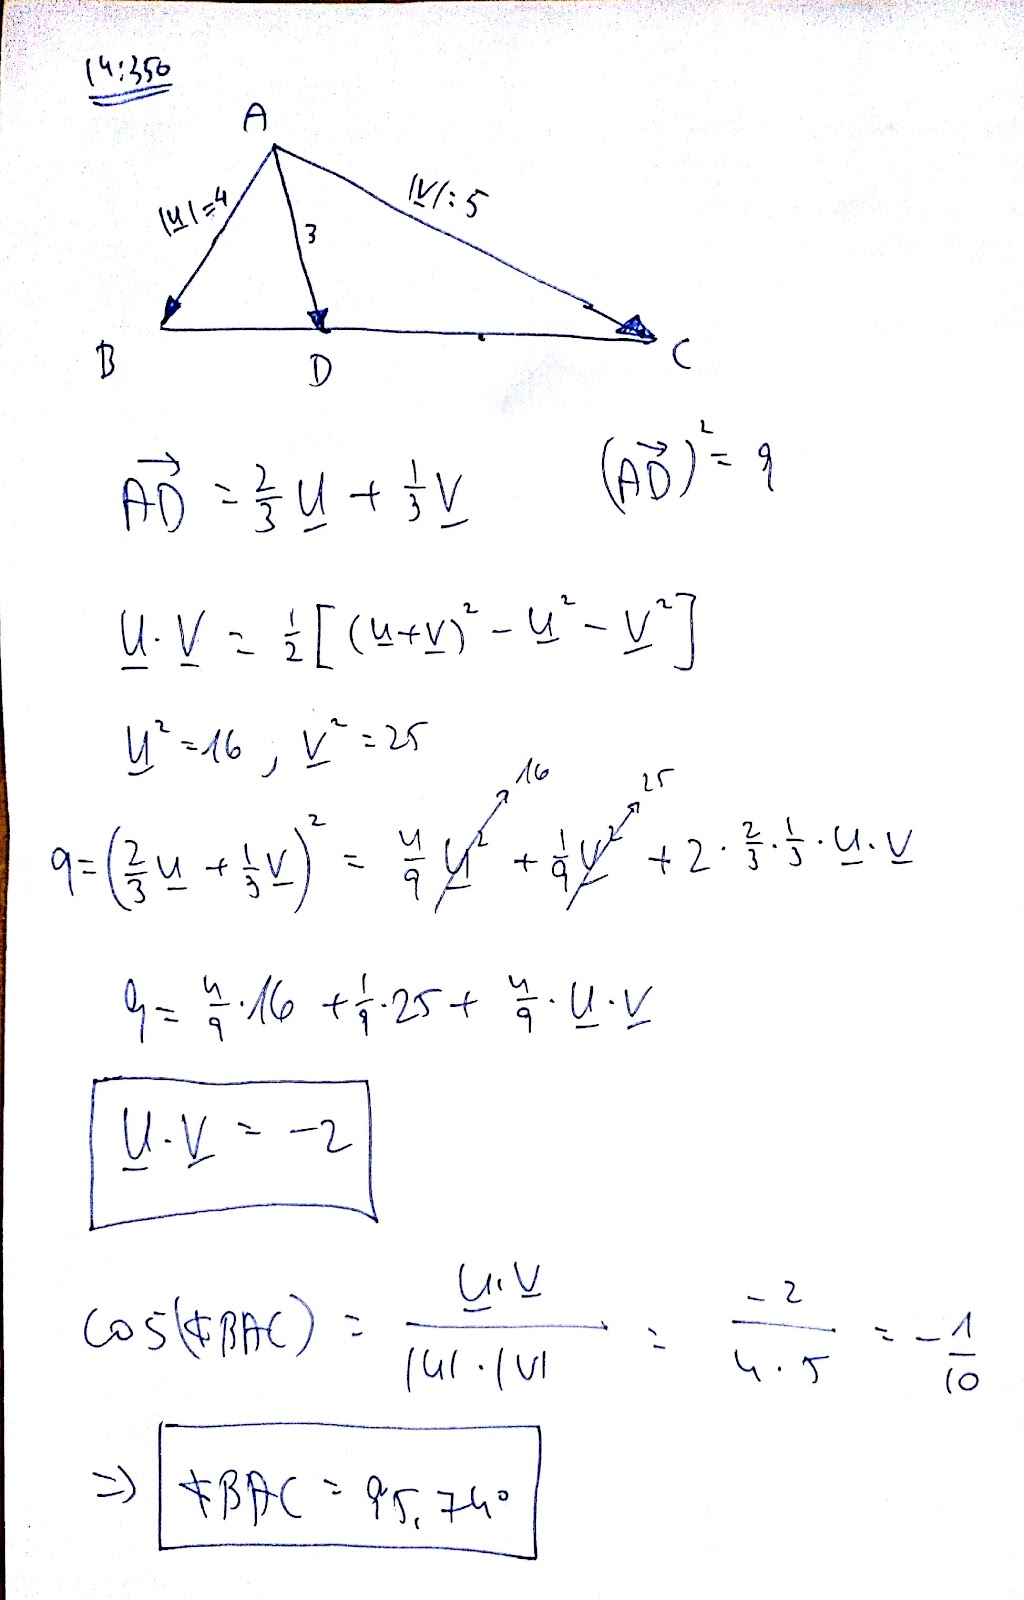 14:350
A
|u|=4
3
|v|:5
B
D
C
AD⃗ = 2/3 u + 1/3 v
(AD⃗)² = 9
u · v = 1/2 [(u+v)² - u² - v²]
u² = 16 , v² = 25
16
25
9 = (2/3 u + 1/3 v)² = 4/9 u² + 1/9 v² + 2 · 2/3 · 1/3 · u · v
9 = 4/9 · 16 + 1/9 · 25 + 4/9 · u · v
u · v = -2
cos(∢BAC) = u·v / |u|·|v| = -2 / 4·5 = -1/10
⇒ ∢BAC = 95,74°